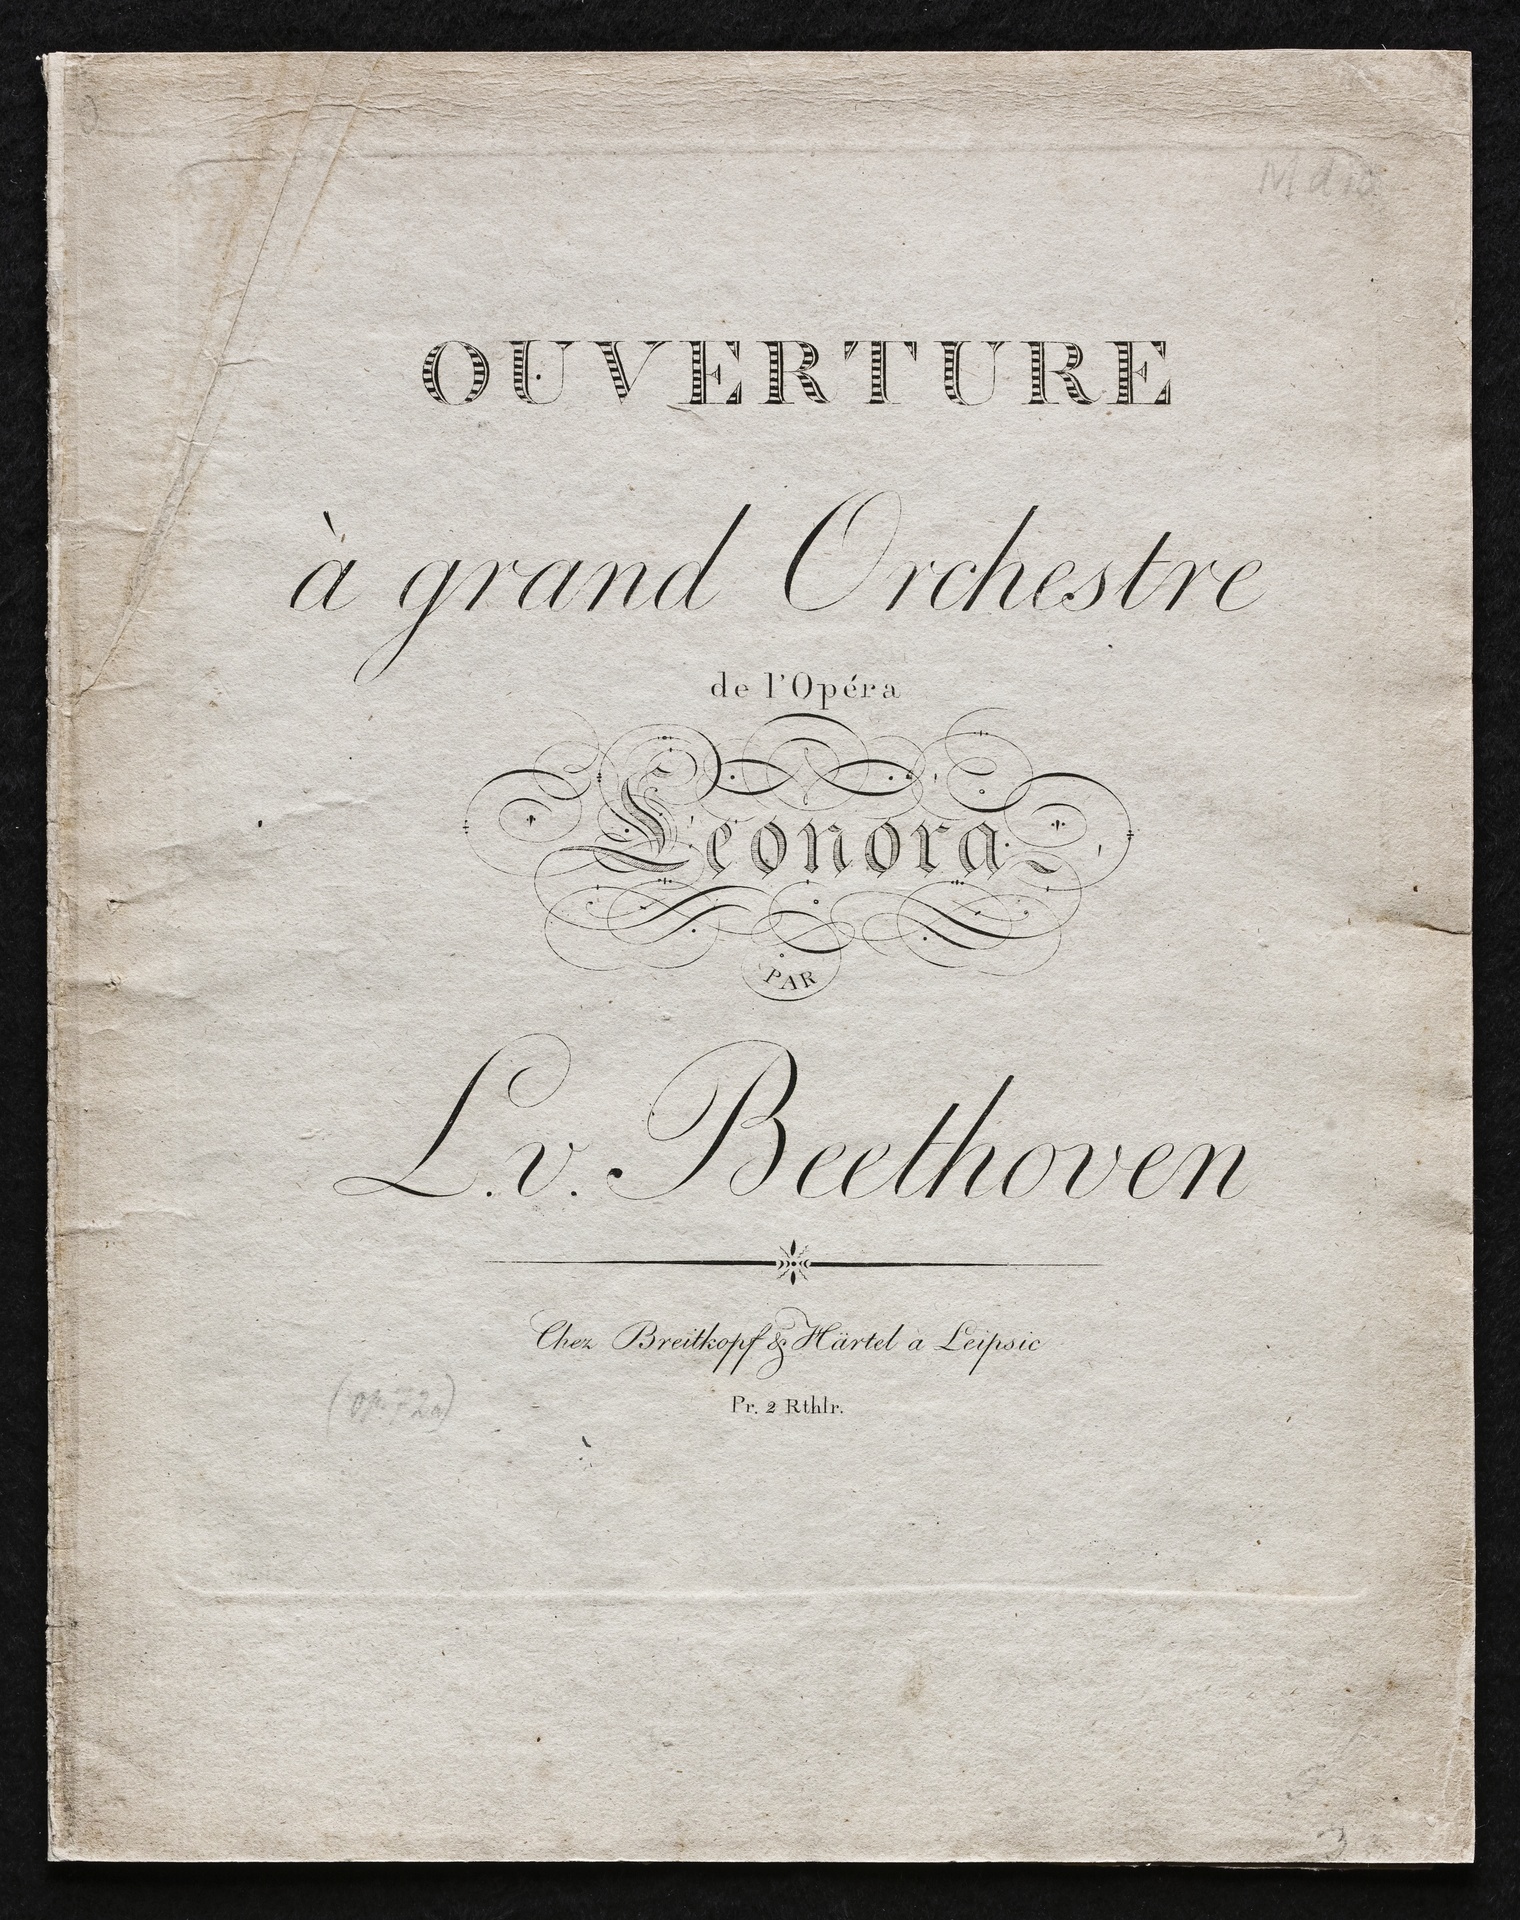 OUVERTURE
à grand Orchestre
de l'Opéra
Leonora
PAR
L. v. Beethoven
Chez Breitkopf & Härtel à Leipsic
Pr. 2 Rthlr.
(op. 72a)
3